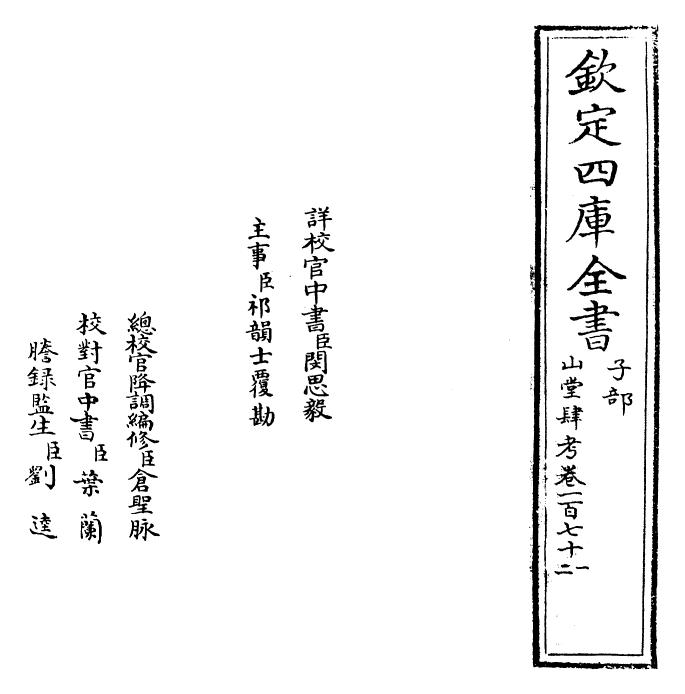 欽定四庫全書
子部
山堂肆考卷一百七十一二
詳校官中書臣閔思毅
主事臣祁韻士覆勘
總校官降調編修臣倉聖脉
校對官中書臣葉蘭
謄録監生臣劉逵